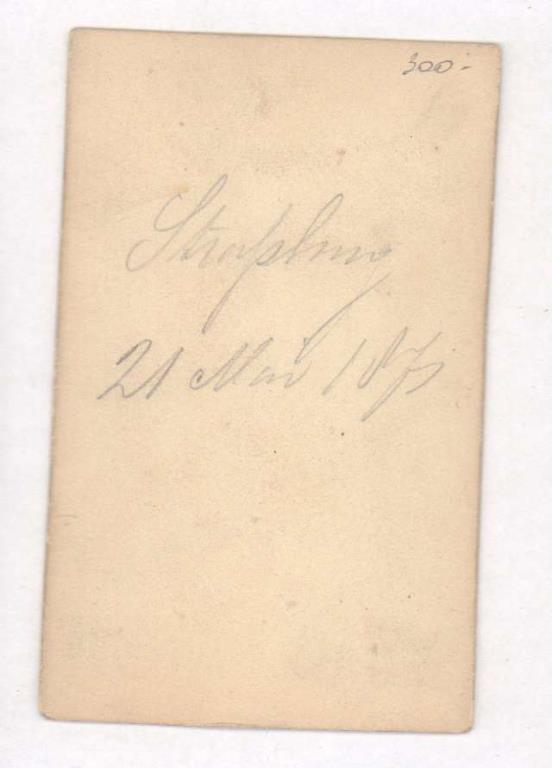 300.-
Straßburg
21 Mai 187